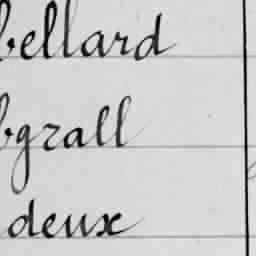 bellard
bgrall
deux